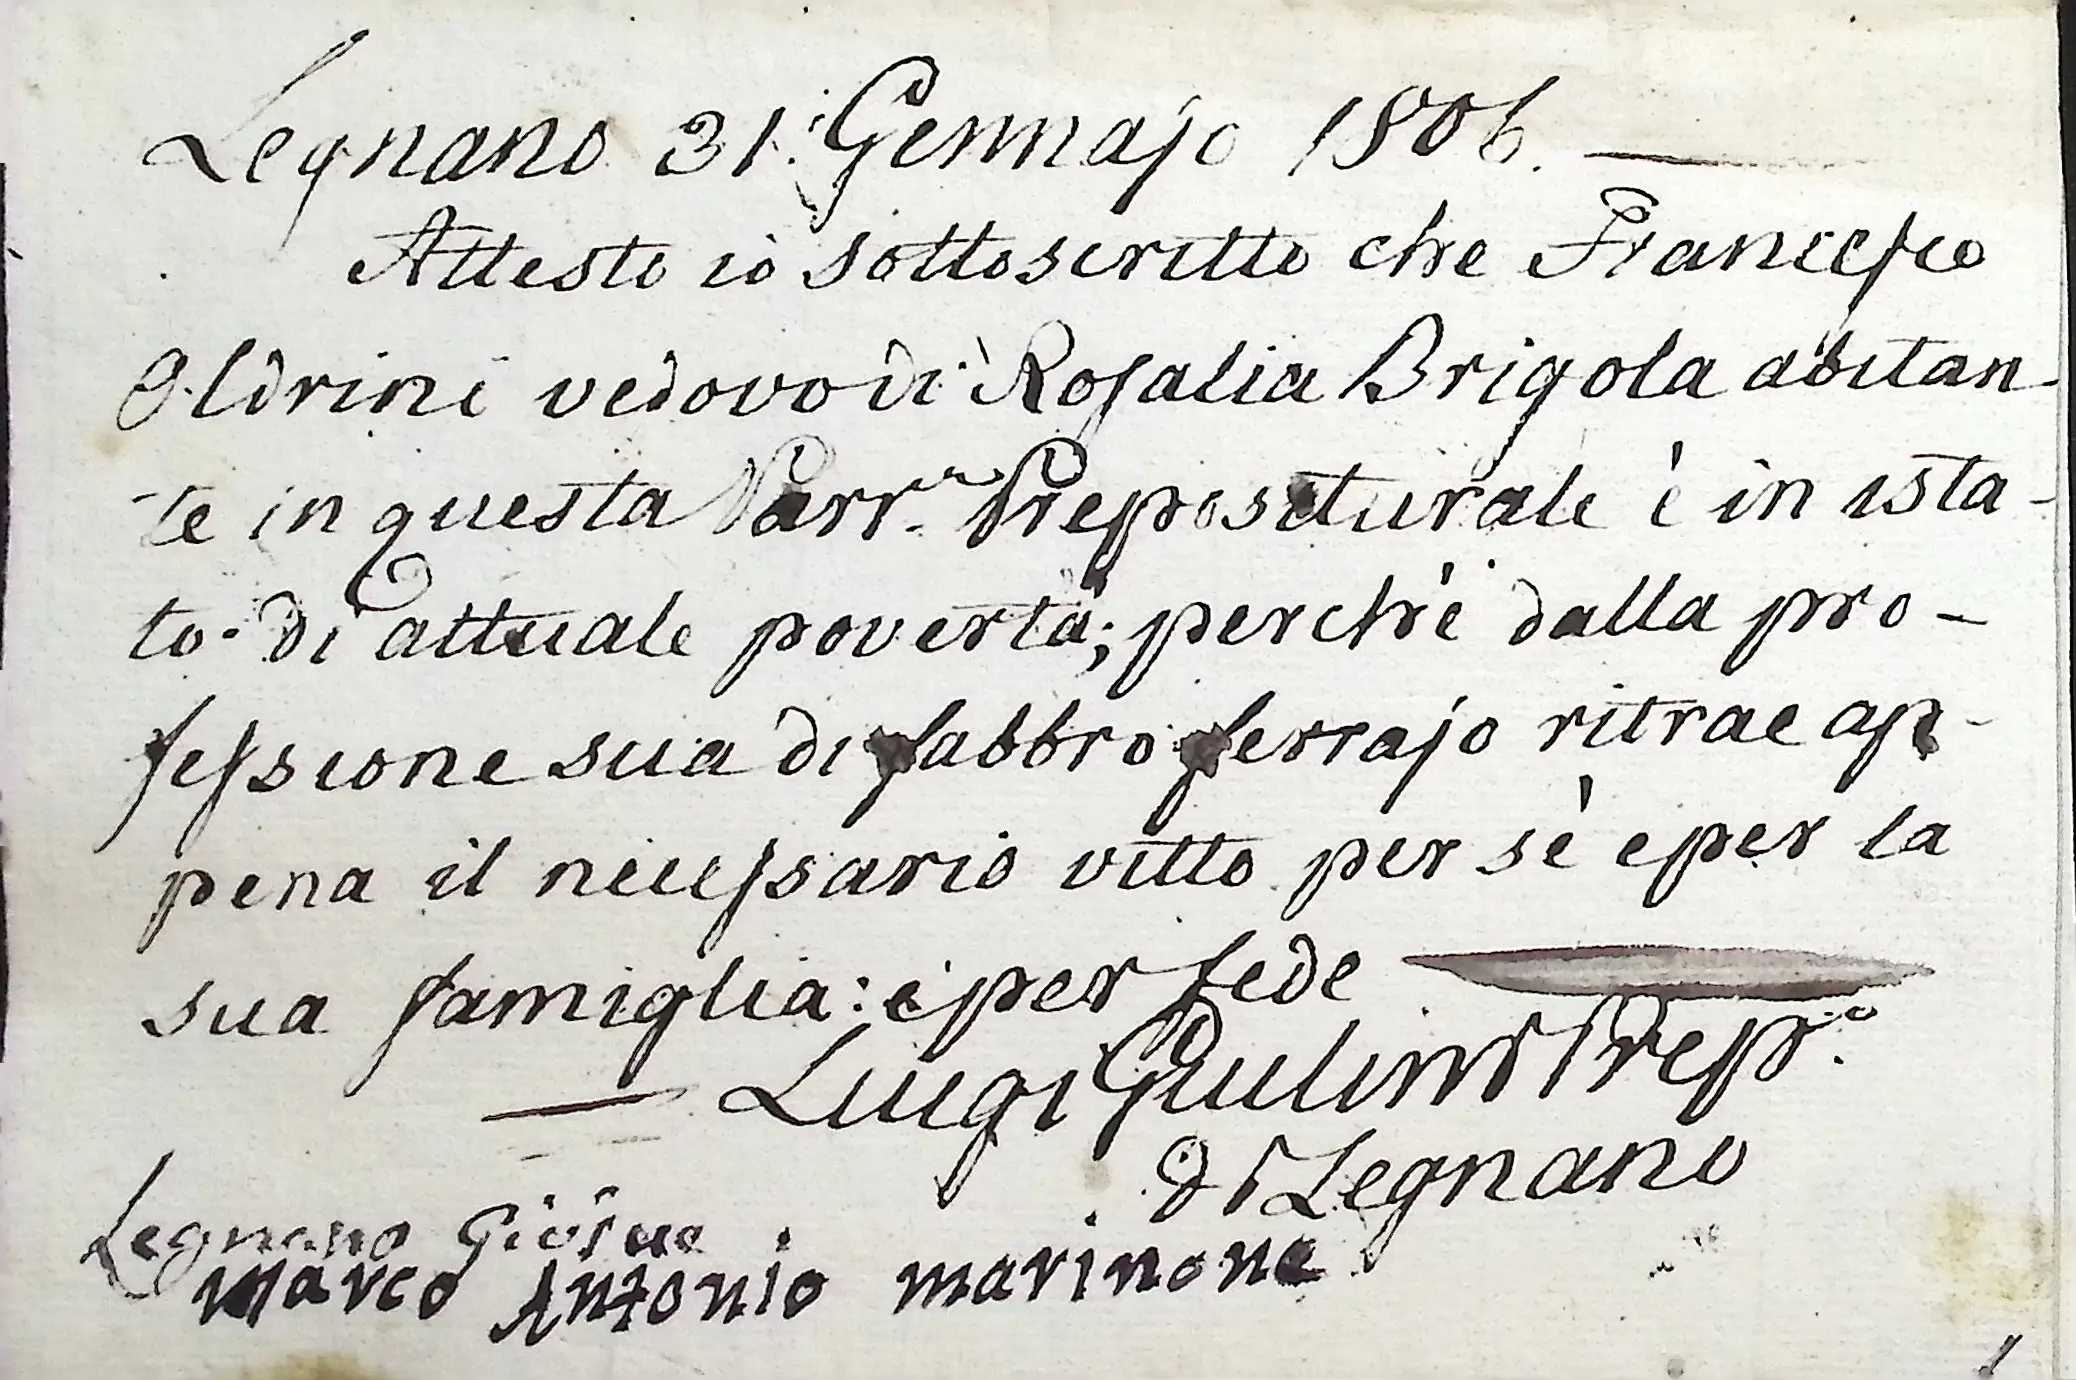 Legnano 31. Gennajo 1806.
Attesto io sottoscritto che Francesco
Oldrini vedovo di Rosalia Brigola abitan-
te in questa Parr.a Prepositurale è in ista-
to di attuale povertà; perchè dalla pro-
fessione sua di fabbro ferrajo ritrae ap-
pena il necessario vitto per sè e per la
sua famiglia: e per fede
Luigi Giulini Prep.o
di Legnano
Legnano Giosue
Marco Antonio marinone
1